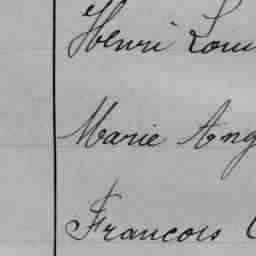 Henri Loui
Marie Ang
Francois